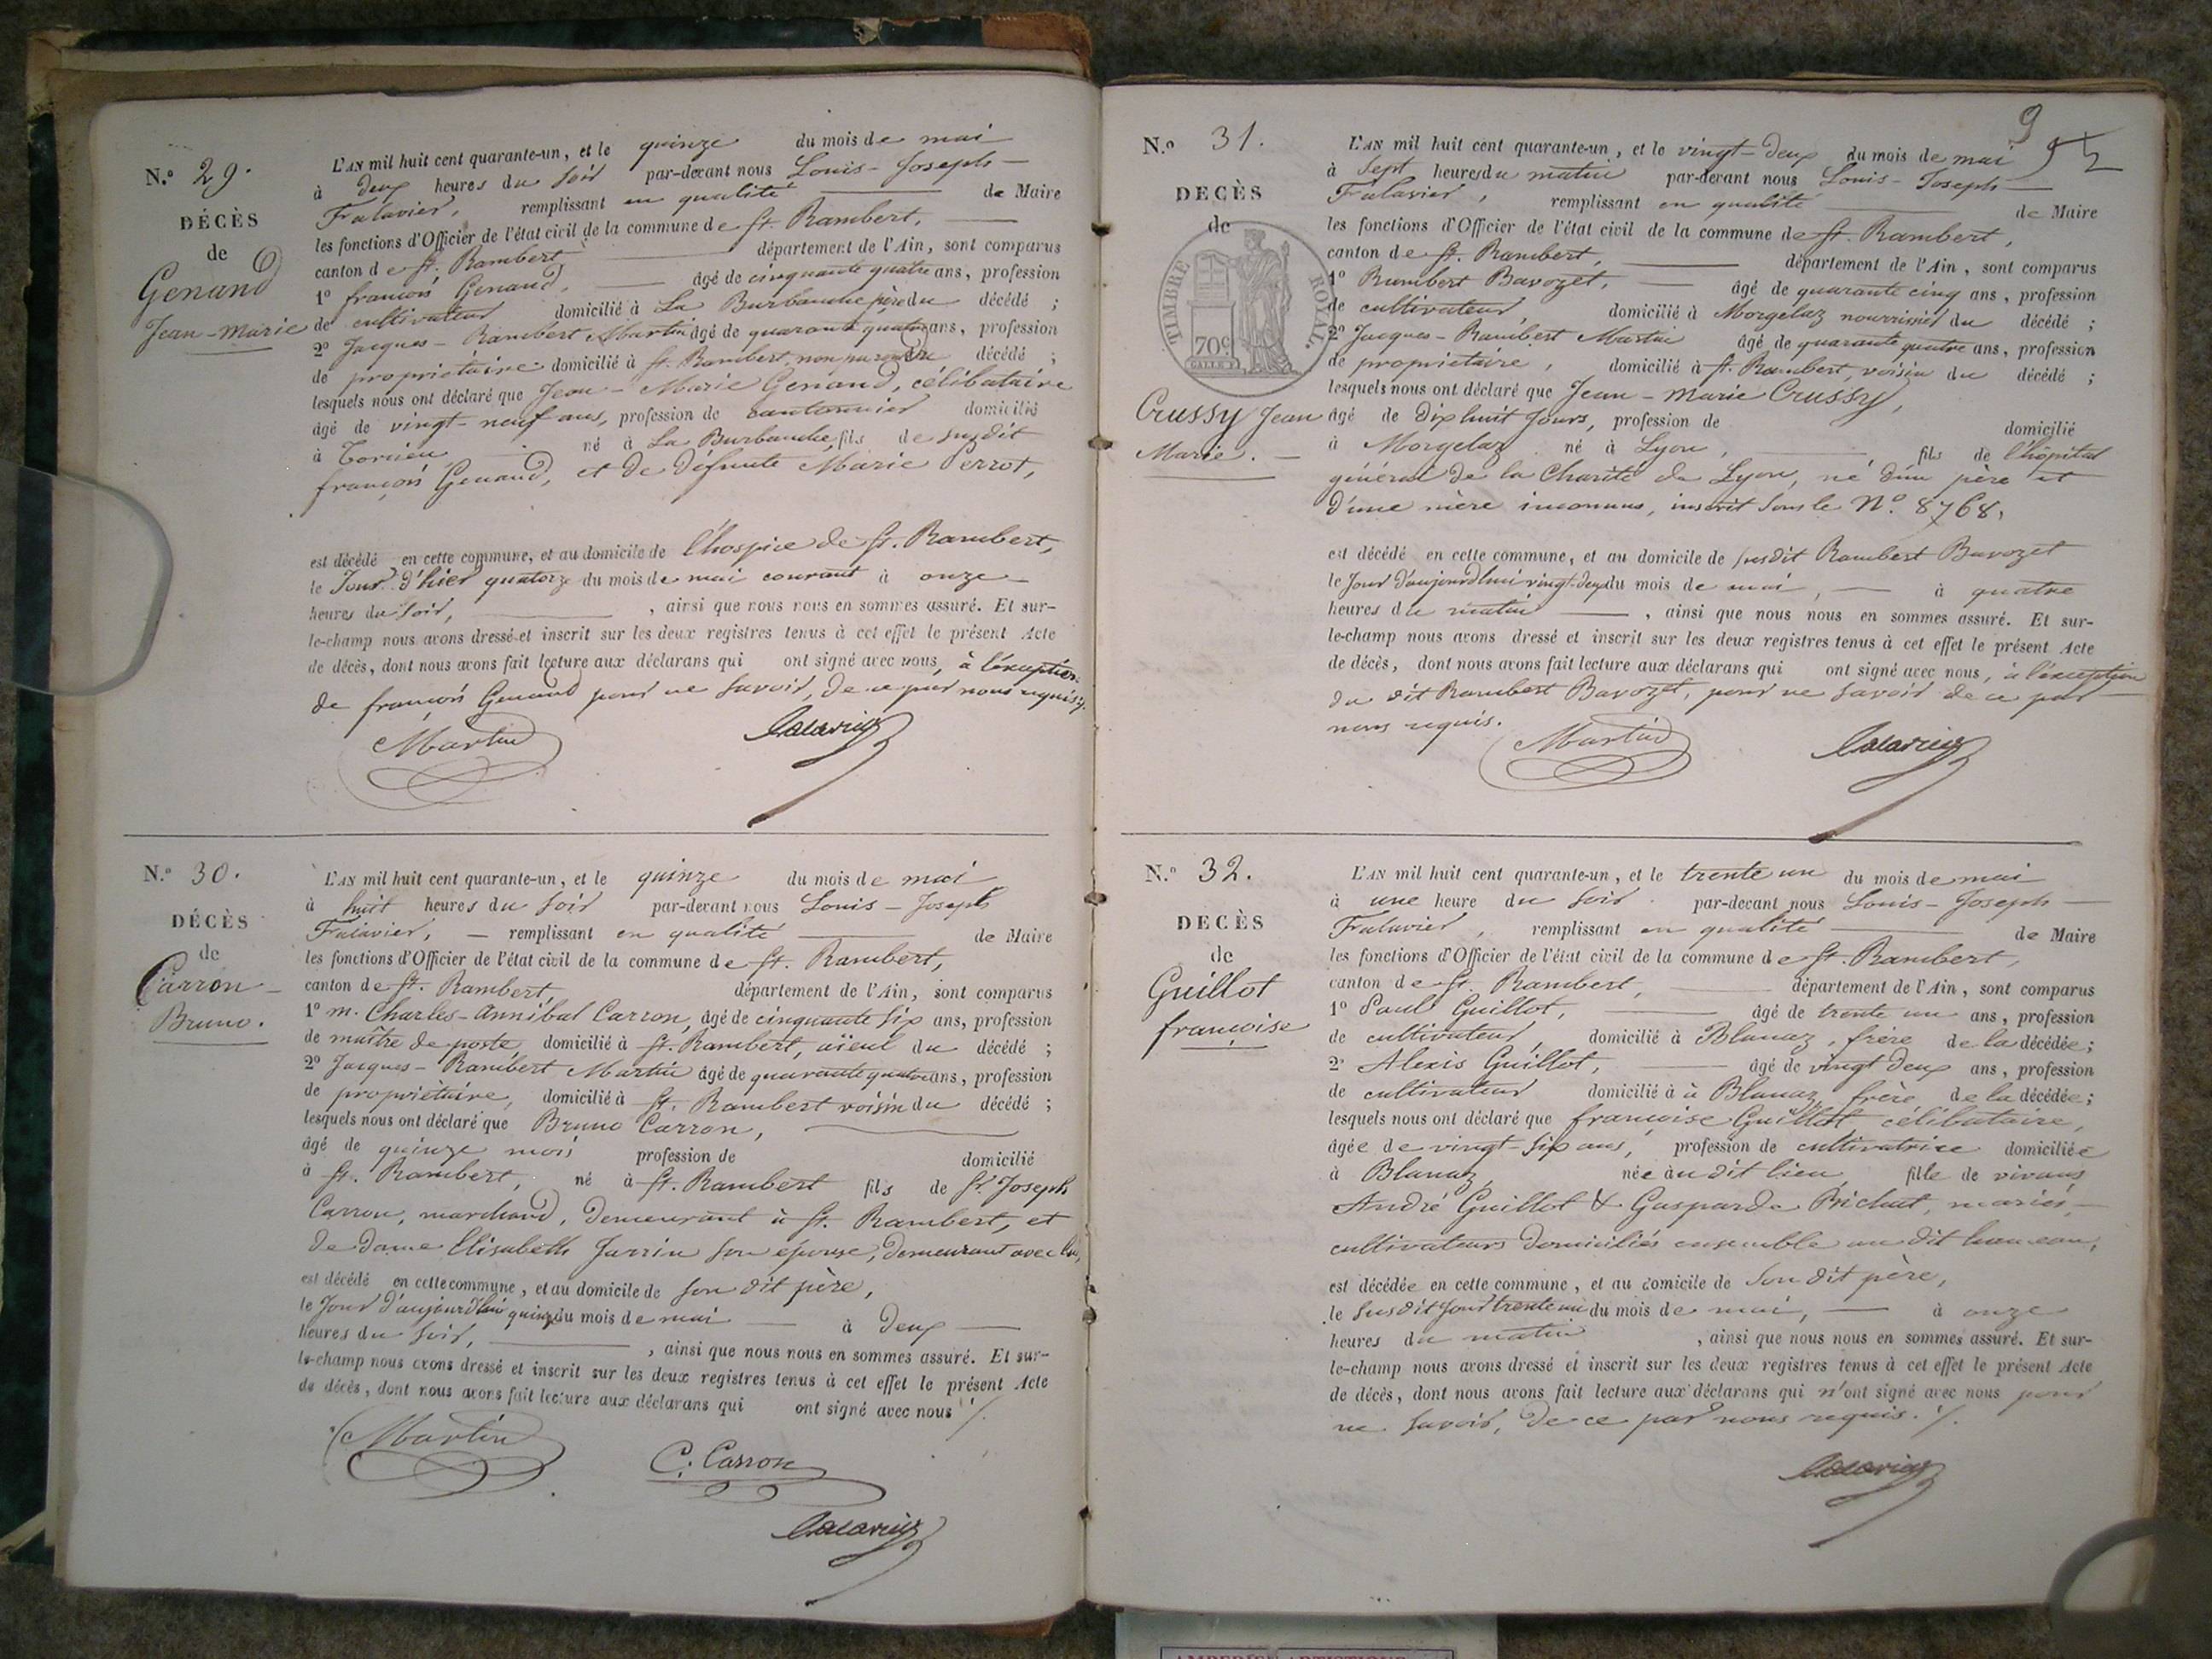 N.º 29.
DÉCÈS
de
Genand
Jean-Marie
L'AN mil huit cent quarante-un, et le quinze du mois de mai
à deux heures du soir par-devant nous Louis-Joseph
Falavier, remplissant en qualité de Maire
les fonctions d'Officier de l'état civil de la commune de St. Rambert,
canton de St. Rambert département de l'Ain, sont comparus
1º françois Genand, âgé de cinquante quatre ans, profession
de cultivateur domicilié à La Burbanche père du décédé ;
2º Jacques-Rambert Martin âgé de quarante quatre ans, profession
de propriétaire domicilié à St. Rambert non parent du décédé ;
lesquels nous ont déclaré que Jean-Marie Genand, célibataire
âgé de vingt-neuf ans, profession de cantonnier domicilié
à Torcieu né à La Burbanche, fils de susdit
françois Genand, et de défunte Marie Perrot,
est décédé en cette commune, et au domicile de l'hospice de St. Rambert,
le Jour d'hier quatorze du mois de mai courant à onze
heures du soir, , ainsi que nous nous en sommes assuré. Et sur-
le-champ nous avons dressé et inscrit sur les deux registres tenus à cet effet le présent Acte
de décès, dont nous avons fait lecture aux déclarans qui ont signé avec nous, à l'exception
de françois Genand pour ne savoir, de ce par nous requis ./.
Martin
Falavier
N.º 30.
DÉCÈS
de
Carron
Bruno.
L'AN mil huit cent quarante-un, et le quinze du mois de mai
à huit heures du soir par-devant nous Louis-Joseph
Falavier, remplissant en qualité de Maire
les fonctions d'Officier de l'état civil de la commune de St. Rambert,
canton de St. Rambert, département de l'Ain, sont comparus
1º m. Charles-Annibal Carron, âgé de cinquante six ans, profession
de maître de poste domicilié à St. Rambert, aïeul du décédé ;
2º Jacques-Rambert Martin âgé de quarante quatre ans, profession
de propriétaire, domicilié à St. Rambert voisin du décédé ;
lesquels nous ont déclaré que Bruno Carron,
âgé de quinze mois profession de domicilié
à St. Rambert, né à St. Rambert fils de Sr. Joseph
Carron, marchand, demeurant à St. Rambert, et
de dame Elisabeth Jarrin son épouse, demeurant avec lui,
est décédé en cette commune, et au domicile de son dit père,
le Jour d'aujourd'hui quinze du mois de mai à deux
heures du soir, , ainsi que nous nous en sommes assuré. Et sur-
le-champ nous avons dressé et inscrit sur les deux registres tenus à cet effet le présent Acte
de décès, dont nous avons fait lecture aux déclarans qui ont signé avec nous ./.
Martin
C. Carron
Falavier
9
N.º 31.
DECÈS
de
TIMBRE ROYAL.
70c
Crussy Jean
Marie.
L'AN mil huit cent quarante-un, et le vingt-deux du mois de mai
à sept heures du matin par-devant nous Louis-Joseph
Falavier, remplissant en qualité de Maire
les fonctions d'Officier de l'état civil de la commune de St. Rambert,
canton de St. Rambert, département de l'Ain, sont comparus
1º Rambert Bavozet, âgé de quarante cinq ans, profession
de cultivateur, domicilié à Morgelaz nourricier du décédé ;
2º Jacques-Rambert Martin âgé de quarante quatre ans, profession
de propriétaire, domicilié à St. Rambert, voisin du décédé ;
lesquels nous ont déclaré que Jean-Marie Crussy,
âgé de dix huit Jours, profession de domicilié
à Morgelaz né à Lyon, fils de l'hôpital
général de la Charité de Lyon, né d'un père et
d'une mère inconnus, inscrit sous le Nº. 8768,
est décédé en cette commune, et au domicile de susdit Rambert Bavozet
le Jour d'aujourd'hui vingt-deux du mois de mai, à quatre
heures du matin , ainsi que nous nous en sommes assuré. Et sur-
le-champ nous avons dressé et inscrit sur les deux registres tenus à cet effet le présent Acte
de décès, dont nous avons fait lecture aux déclarans qui ont signé avec nous, à l'exception
du dit Rambert Bavozet, pour ne savoir de ce par
nous requis.
Martin
Falavier
N.º 32.
DECÈS
de
Guillot
françoise
L'AN mil huit cent quarante-un, et le trente un du mois de mai
à une heure du soir par-devant nous Louis-Joseph
Falavier, remplissant en qualité de Maire
les fonctions d'Officier de l'état civil de la commune de St. Rambert,
canton de St. Rambert, département de l'Ain, sont comparus
1º Paul Guillot, âgé de trente un ans, profession
de cultivateur, domicilié à Blanaz, frère de la décédée ;
2º Alexis Guillot, âgé de vingt deux ans, profession
de cultivateur domicilié à à Blanaz, frère de la décédée ;
lesquels nous ont déclaré que françoise Guillot, célibataire,
âgée de vingt-six ans, profession de cultivatrice domiciliée
à Blanaz, née au dit lieu, fille de vivans
André Guillot & Gasparde Brichat, mariés,
cultivateurs domiciliés ensemble au dit hameau,
est décédée en cette commune, et au domicile de son dit père,
le susdit Jour trente un du mois de mai, à onze
heures du matin , ainsi que nous nous en sommes assuré. Et sur-
le-champ nous avons dressé et inscrit sur les deux registres tenus à cet effet le présent Acte
de décès, dont nous avons fait lecture aux déclarans qui n'ont signé avec nous pour
ne savoir, de ce par nous requis. ./.
Falavier